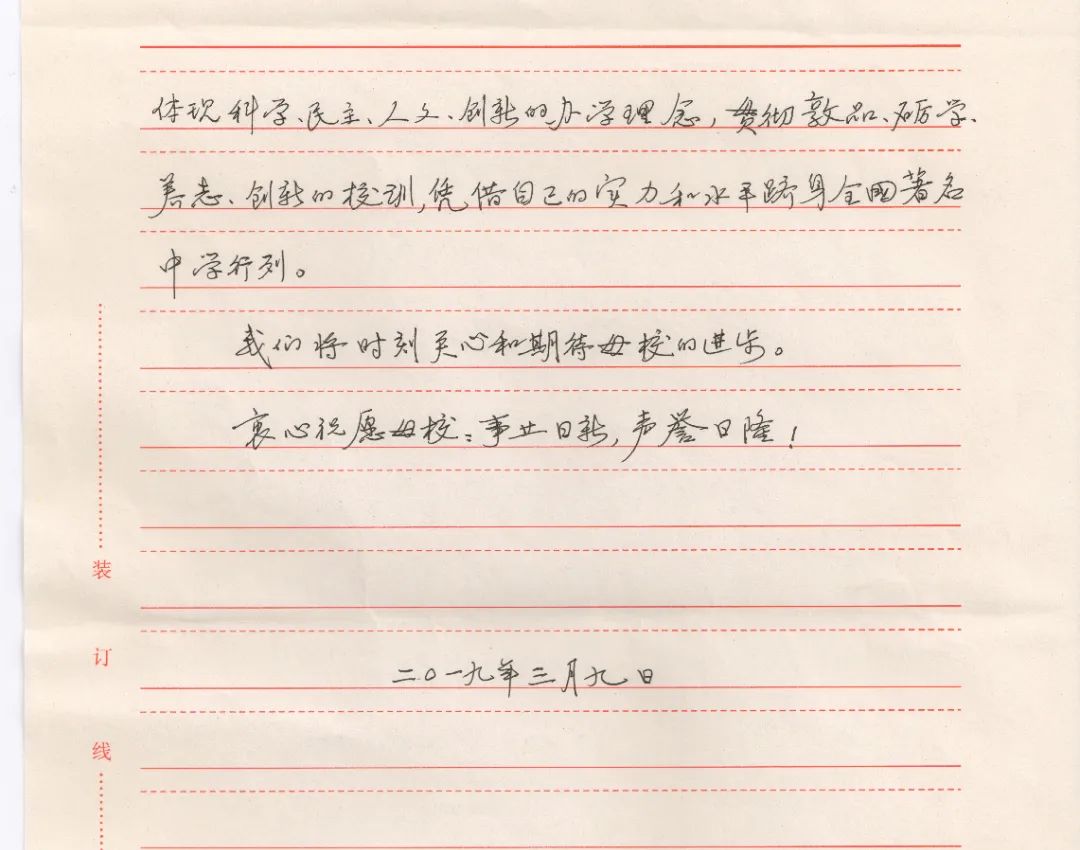 体现科学、民主、人文、创新的办学理念，贯彻敦品、砺学、
养志、创新的校训，凭借自己的实力和水平跻身全国著名
中学行列。
我们将时刻关心和期待母校的进步。
衷心祝愿母校：事业日新，声誉日隆！
二〇一九年三月九日
装
订
线